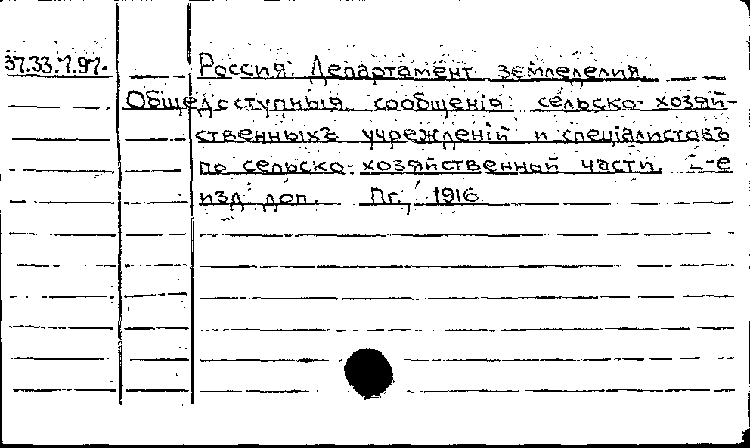 37.33.7.97. Россия. Департамент земледелия.
Общедоступныя сообщенія сельско-хозяй-
ственныхъ учрежденій и спеціалистовъ
по сельско-хозяйственной части. 2-е
изд. доп. Пг., 1916